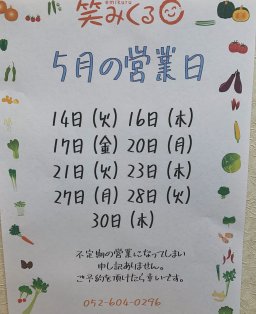 emikuru
笑みくる
5月の営業日
14日(火) 16日(木)
17日(金) 20日(月)
21日(火) 23日(木)
27日(月) 28日(火)
30日(木)
不定期の営業になってしまい
申し訳ありません。
ご予約を頂けたら幸いです。
052-604-0296